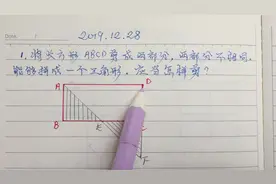 2019.12.28
1. 将长方形 ABCD 剪成两部分，两部分不相同，
能够拼成一个三角形。应当怎样剪？
A
D
B
E
F